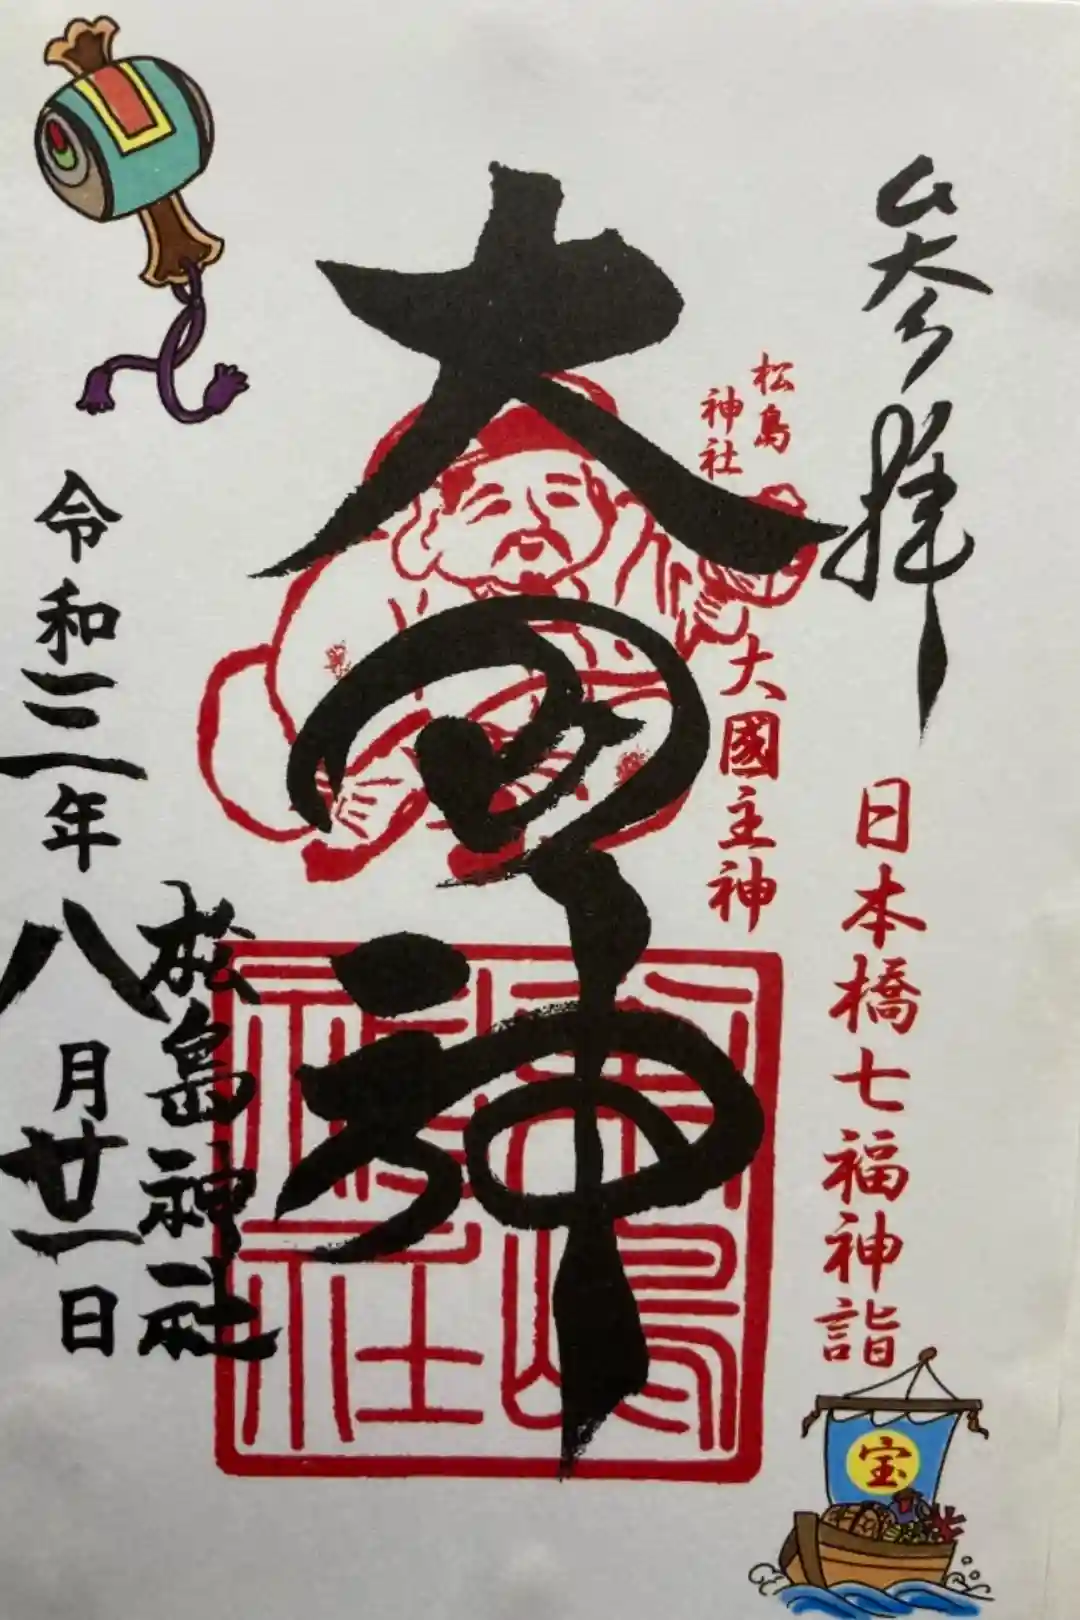 参拝
日本橋七福神詣
松島
神社
大國主神
大国神
松島神社
松島神社
令和三年八月廿一日
宝